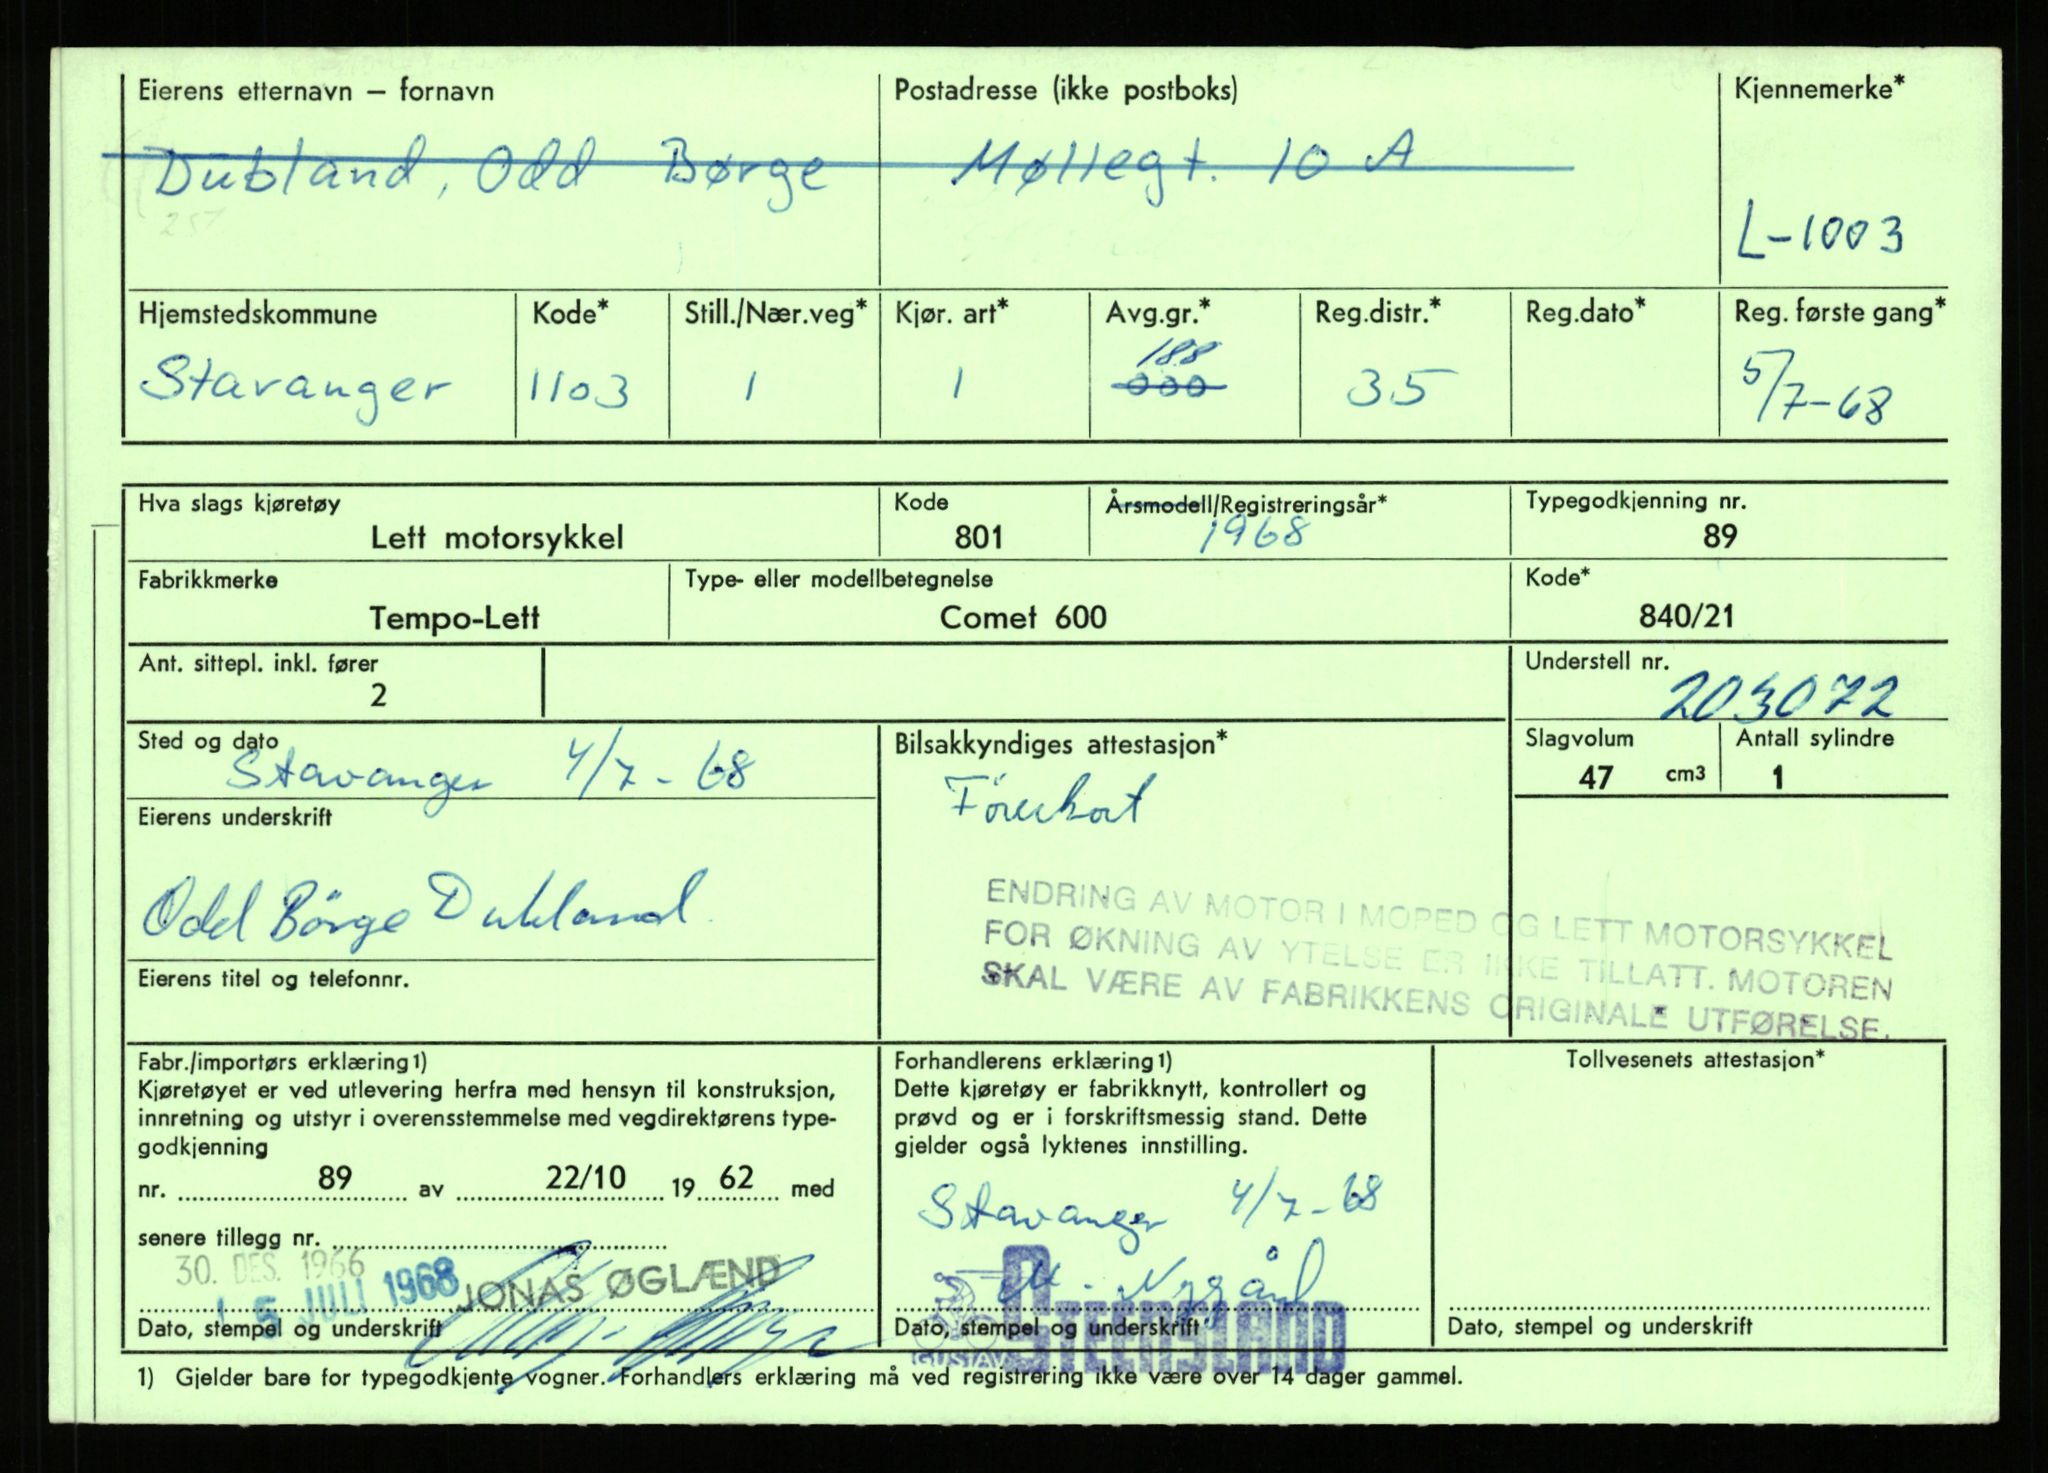 Eierens etternavn – fornavn
Postadresse (ikke postboks)
Kjennemerke*
Dubland, Odd Børge
Møllegt. 10 A
L-1003
Hjemstedskommune
Kode*
Still./Nær.veg*
Kjør. art*
Avg.gr.*
Reg.distr.*
Reg.dato*
Reg. første gang*
188
Stavanger
1103
1
1
000
35
5/7-68
Hva slags kjøretøy
Kode
Årsmodell/Registreringsår*
Typegodkjenning nr.
Lett motorsykkel
801
1968
89
Fabrikkmerke
Type- eller modellbetegnelse
Kode*
Tempo-Lett
Comet 600
840/21
Ant. sittepl. inkl. fører
Understell nr.
2
203072
Sted og dato
Stavanger 4/7-68
Bilsakkyndiges attestasjon*
Slagvolum
Antall sylindre
47 cm3
1
Førerkort
Eierens underskrift
Odd Børge Dubland
ENDRING AV MOTOR I MOPED OG LETT MOTORSYKKEL
FOR ØKNING AV YTELSE ER IKKE TILLATT. MOTOREN
SKAL VÆRE AV FABRIKKENS ORIGINALE UTFØRELSE.
Eierens titel og telefonnr.
Fabr./importørs erklæring1)
Kjøretøyet er ved utlevering herfra med hensyn til konstruksjon,
innretning og utstyr i overensstemmelse med vegdirektørens type-
godkjenning
nr. 89 av 22/10 19 62 med
senere tillegg nr.
30. DES. 1966
5 JULI 1968
JONAS ØGLÆND
Dato, stempel og underskrift
Forhandlerens erklæring1)
Dette kjøretøy er fabrikknytt, kontrollert og
prøvd og er i forskriftsmessig stand. Dette
gjelder også lyktenes innstilling.
Stavanger 4/7-68
Nygård
GUSTAV STEENSLAND
Dato, stempel og underskrift
Tollvesenets attestasjon*
Dato, stempel og underskrift
1) Gjelder bare for typegodkjente vogner. Forhandlers erklæring må ved registrering ikke være over 14 dager gammel.